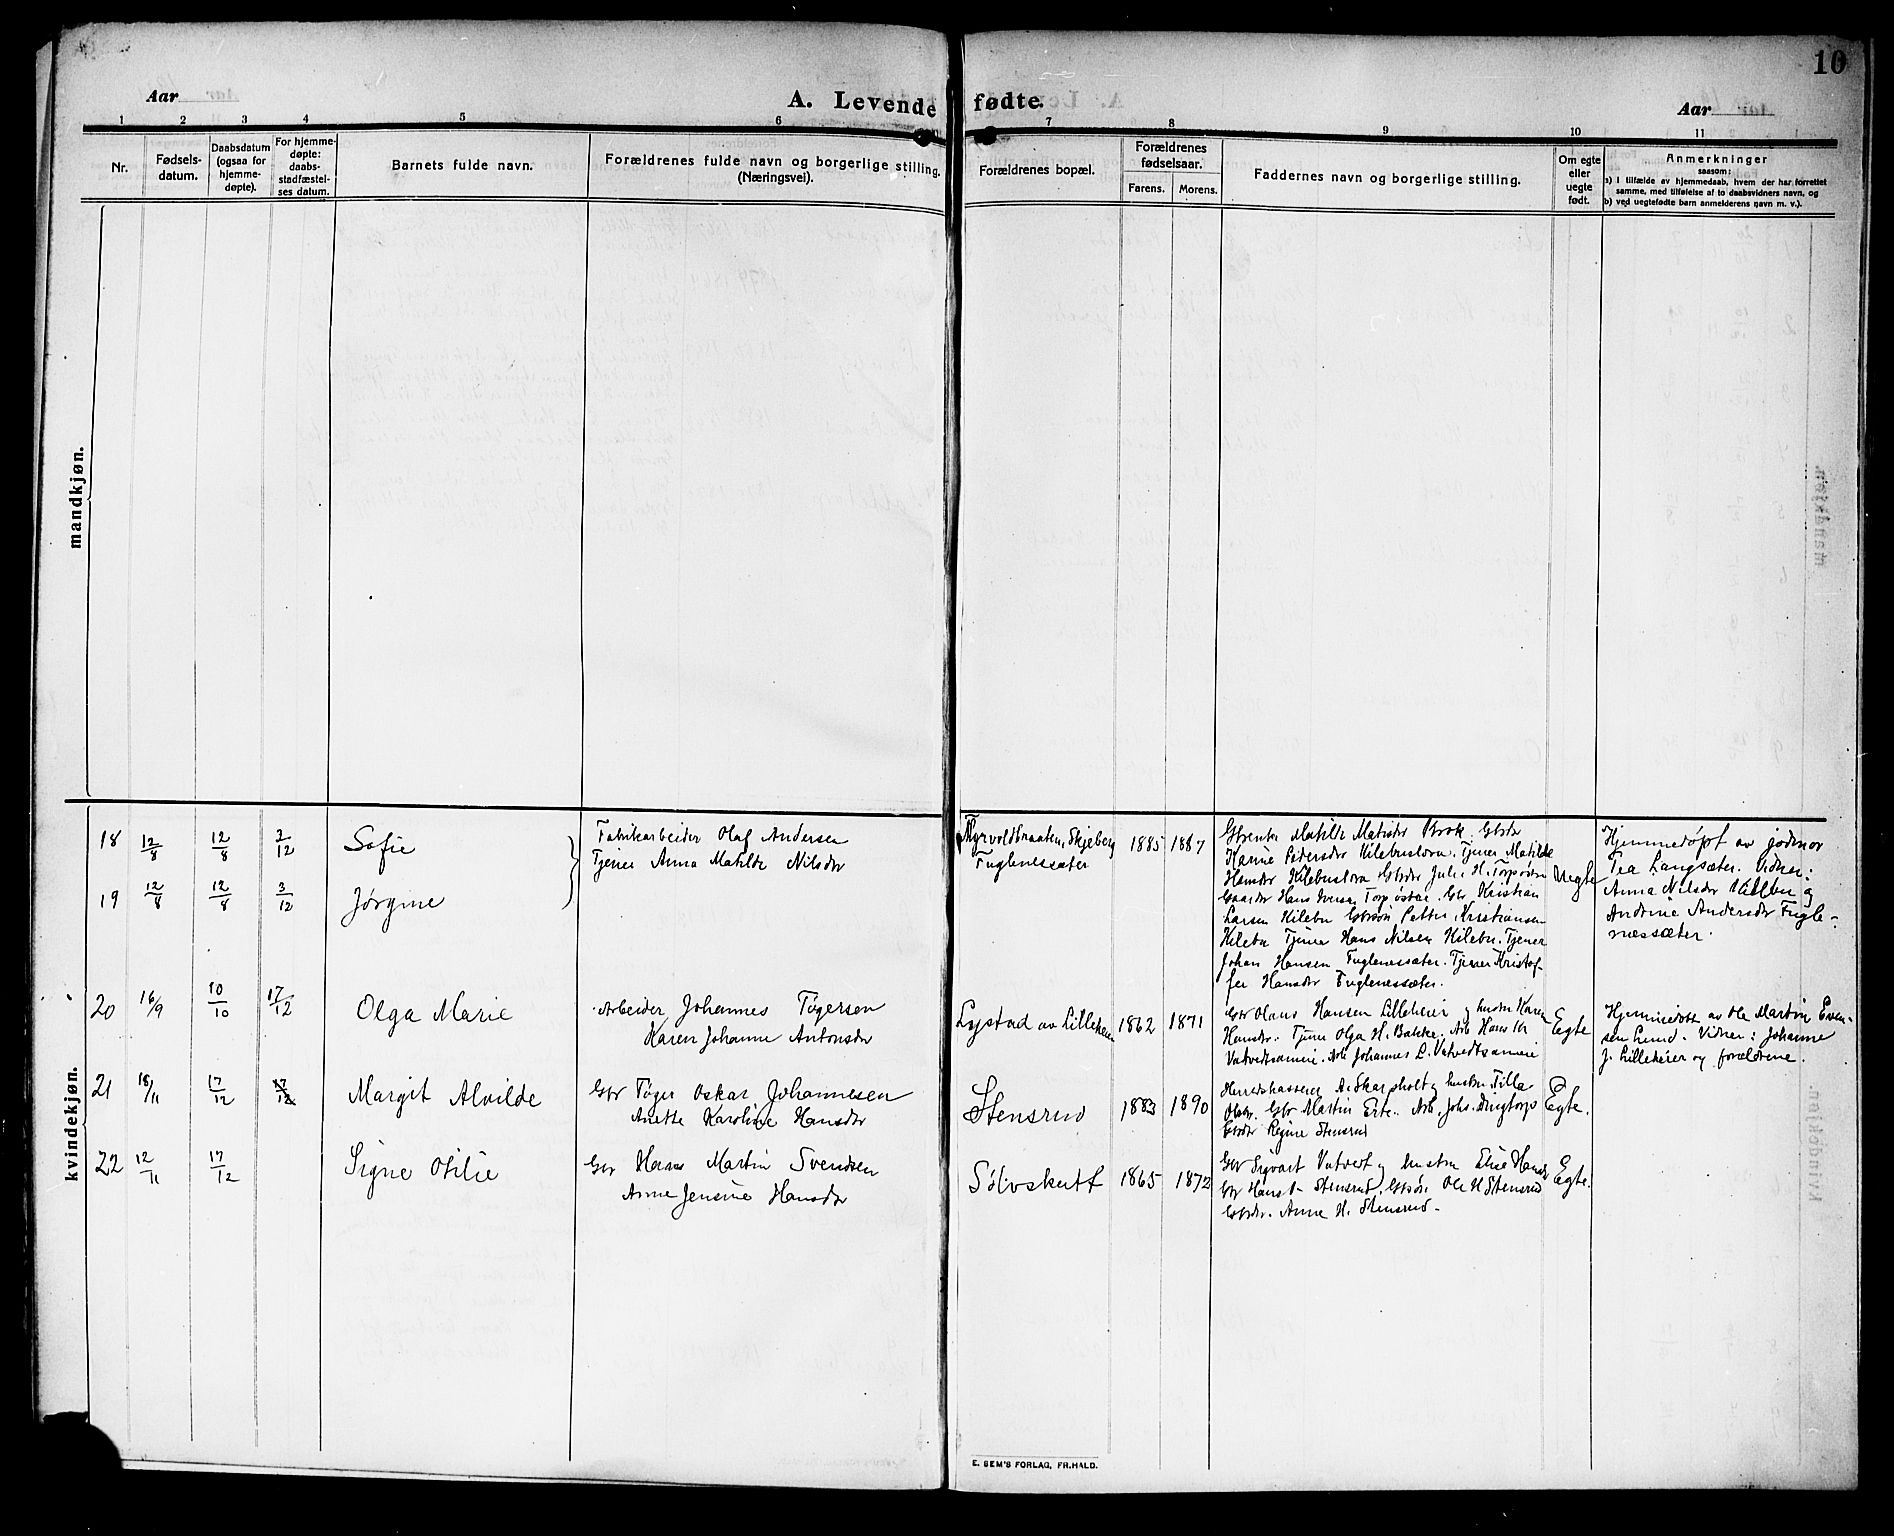 10
Aar
A. Levende fødte.
Aar
1 2 3 4 5 6 7 8 9 10 11
Nr.
Fødsels-
datum.
Daabsdatum
(ogsaa for
hjemme-
døpte).
For hjemme-
døpte:
daabs-
stadfæstel-
ses datum.
Barnets fulde navn.
Forældrenes fulde navn og borgerlige stilling.
(Næringsvei).
Forældrenes bopæl.
Forældrenes
fødselsaar.
Farens. Morens.
Faddernes navn og borgerlige stilling.
Om egte
eller
uegte
født.
Anmerkninger
saasom:
a) i tilfælde av hjemmedaab, hvem der har forrettet
samme, med tilføielse af to daabsvidners navn, og
b) ved uegtefødte barn anmelderens navn m. v.).
mandkjøn.
kvindekjøn.
18 12/8 12/8 3/12 Sofie
19 12/8 12/8 3/12 Jørgine
Fabrikarbeider Olaf Andersen
Tjener Anna Matilde Nilsdr
Skjeberg
Fuglenessæter
1885 1887
Matilde Krok.
Karine Pedersdr Kilebuslora. Tjener Matilde
Hansdr Kilebuslora Gbrdr Julie H. Torpøstre
Gaardbr Hans Iversen Torp østre. Gbr Kristian
Larsen Kilebu Gbrsøn Petter Kristiansen
Kilebu Tjener Hans Nilsen Kilebu. Tjener
Johan Hansen Fuglenessæter. Tjener Kristof-
fer Hansdr Fuglenessæter.
Uegte
Hjemmedøpt av jodmor
Tea Langsæter. Vidner:
Anna Nilsdr Kilebu og
Andrine Andersdr Fugle-
nessæter.
20 16/9 10/10 17/12 Olga Marie
Arbeider Johannes Tøgersen
Karen Johanne Antonsdr
Lystad av Lilleheier
1862 1871
Gbr Hans Hansen Lilleheier og hustru Karen
Hansdr. Tjener Olga H. Bakke. Arb Hans Kr
Vatvedtsameie. Arb Johannes L. Vatvedtsameie
Egte
Hjemmedøbt av Ole Martin Even-
sen Lund. Vidner: Johanne
J. Lilleheier og forældrene.
21 18/11 17/12 17/12 Margit Alvilde
Gbr Tøger Oskar Johannesen
Anette Karoline Hansdr
Stensrud
1883 1890
Herredskasserer A. Skarpholt og hustru Tilla
Olsdr. Gbr Martin Erte. Arb. Johs. Dingtorp
Gbrdr Regine Stensrud
Egte.
22 12/11 17/12 Signe Otilie
Gbr Hans Martin Svendsen
Anne Jensine Hansdr
Sølvskutt
1865 1872
Gbr Sigvart Vatvedt og hustru Elise Hansdr
Gbr Hans Stensrud. Gbrsøn Ole H Stensrud
Gbrdr. Anne H. Stensrud.
Egte.
E. SEM'S FORLAG, FR.HALD.